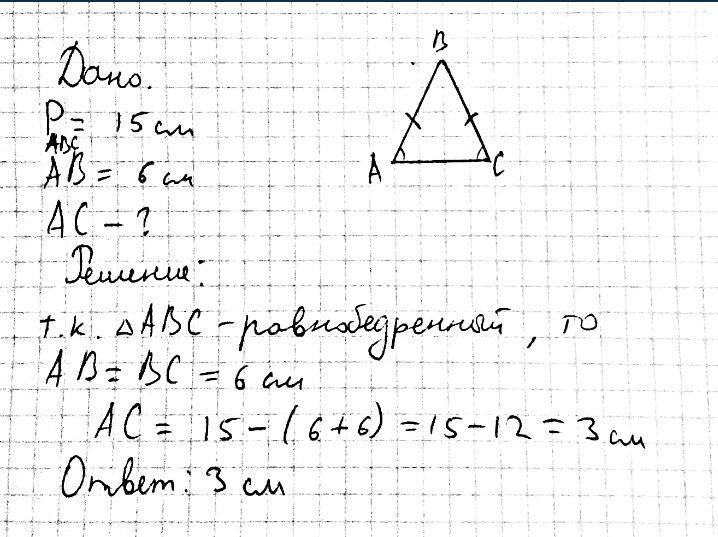 Дано.
P ABC = 15 см
AB = 6 см
AC - ?
Решение:
т.к. △ABC - равнобедренный, то
AB = BC = 6 см
AC = 15 - (6+6) = 15 - 12 = 3 см
Ответ: 3 см
B
A
C